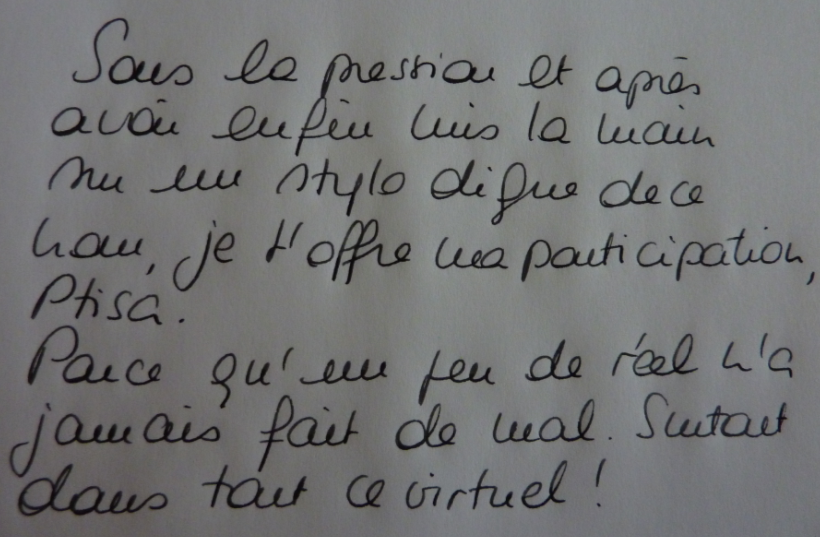 Sous la pression et après
avoir enfin mis la main
sur un stylo digne de ce
nom, je t'offre ma participation,
Ptisa.
Parce qu'un peu de réel n'a
jamais fait de mal. Surtout
dans tout ce virtuel !